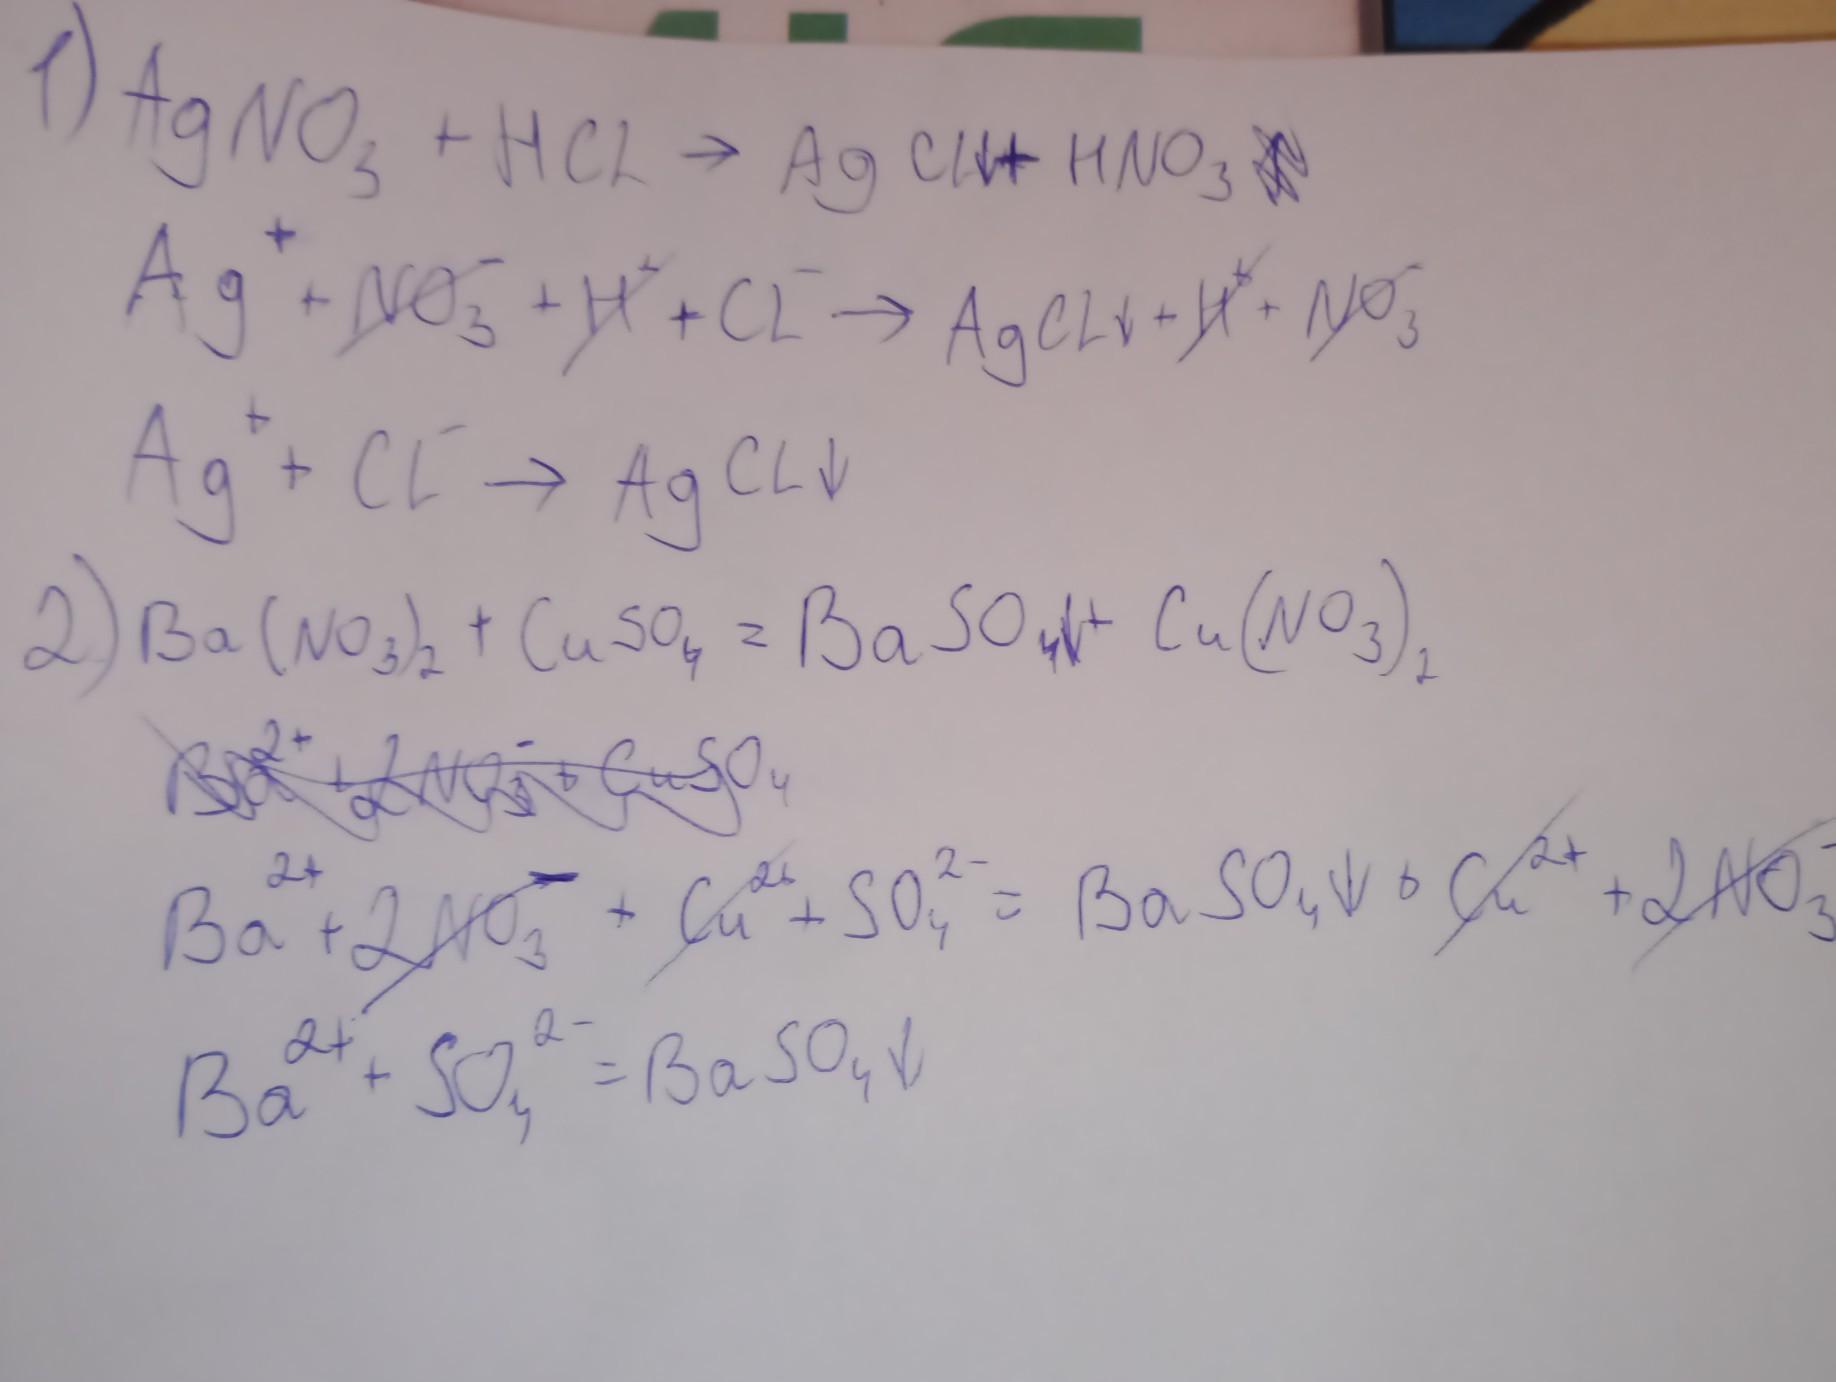 1) AgNO₃ + HCL → AgCl↓ + HNO₃
Ag⁺ + NO₃⁻ + H⁺ + CL⁻ → AgCL↓ + H⁺ + NO₃⁻
Ag⁺ + CL⁻ → AgCL↓
2) Ba(NO₃)₂ + CuSO₄ = BaSO₄↓ + Cu(NO₃)₂
Ba²⁺ + 2NO₃⁻ + CuSO₄
Ba²⁺ + 2NO₃⁻ + Cu²⁺ + SO₄²⁻ = BaSO₄↓ + Cu²⁺ + 2NO₃⁻
Ba²⁺ + SO₄²⁻ = BaSO₄↓